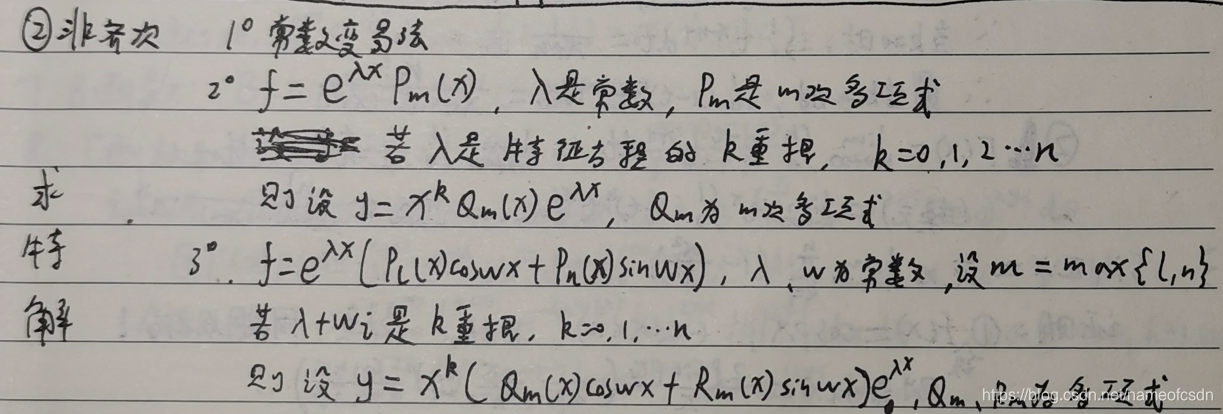 ②非齐次 1° 常数变易法
2° f=e^{λx}P_m(x), λ是常数, P_m是m次多项式
若λ是特征方程的k重根, k=0,1,2…n
求 则设 y=x^k Q_m(x)e^{λx}, Q_m为m次多项式
特 3°. f=e^{λx}(P_l(x)coswx+P_n(x)sinwx), λ、w为常数,设m=max{l,n}
解 若λ+wi是k重根, k=0,1,…n
则设 y=x^k(Q_m(x)coswx+R_m(x)sinwx)e^{λx}, Q_m、R_m为多项式
https://blog.csdn.net/nameofcsdn